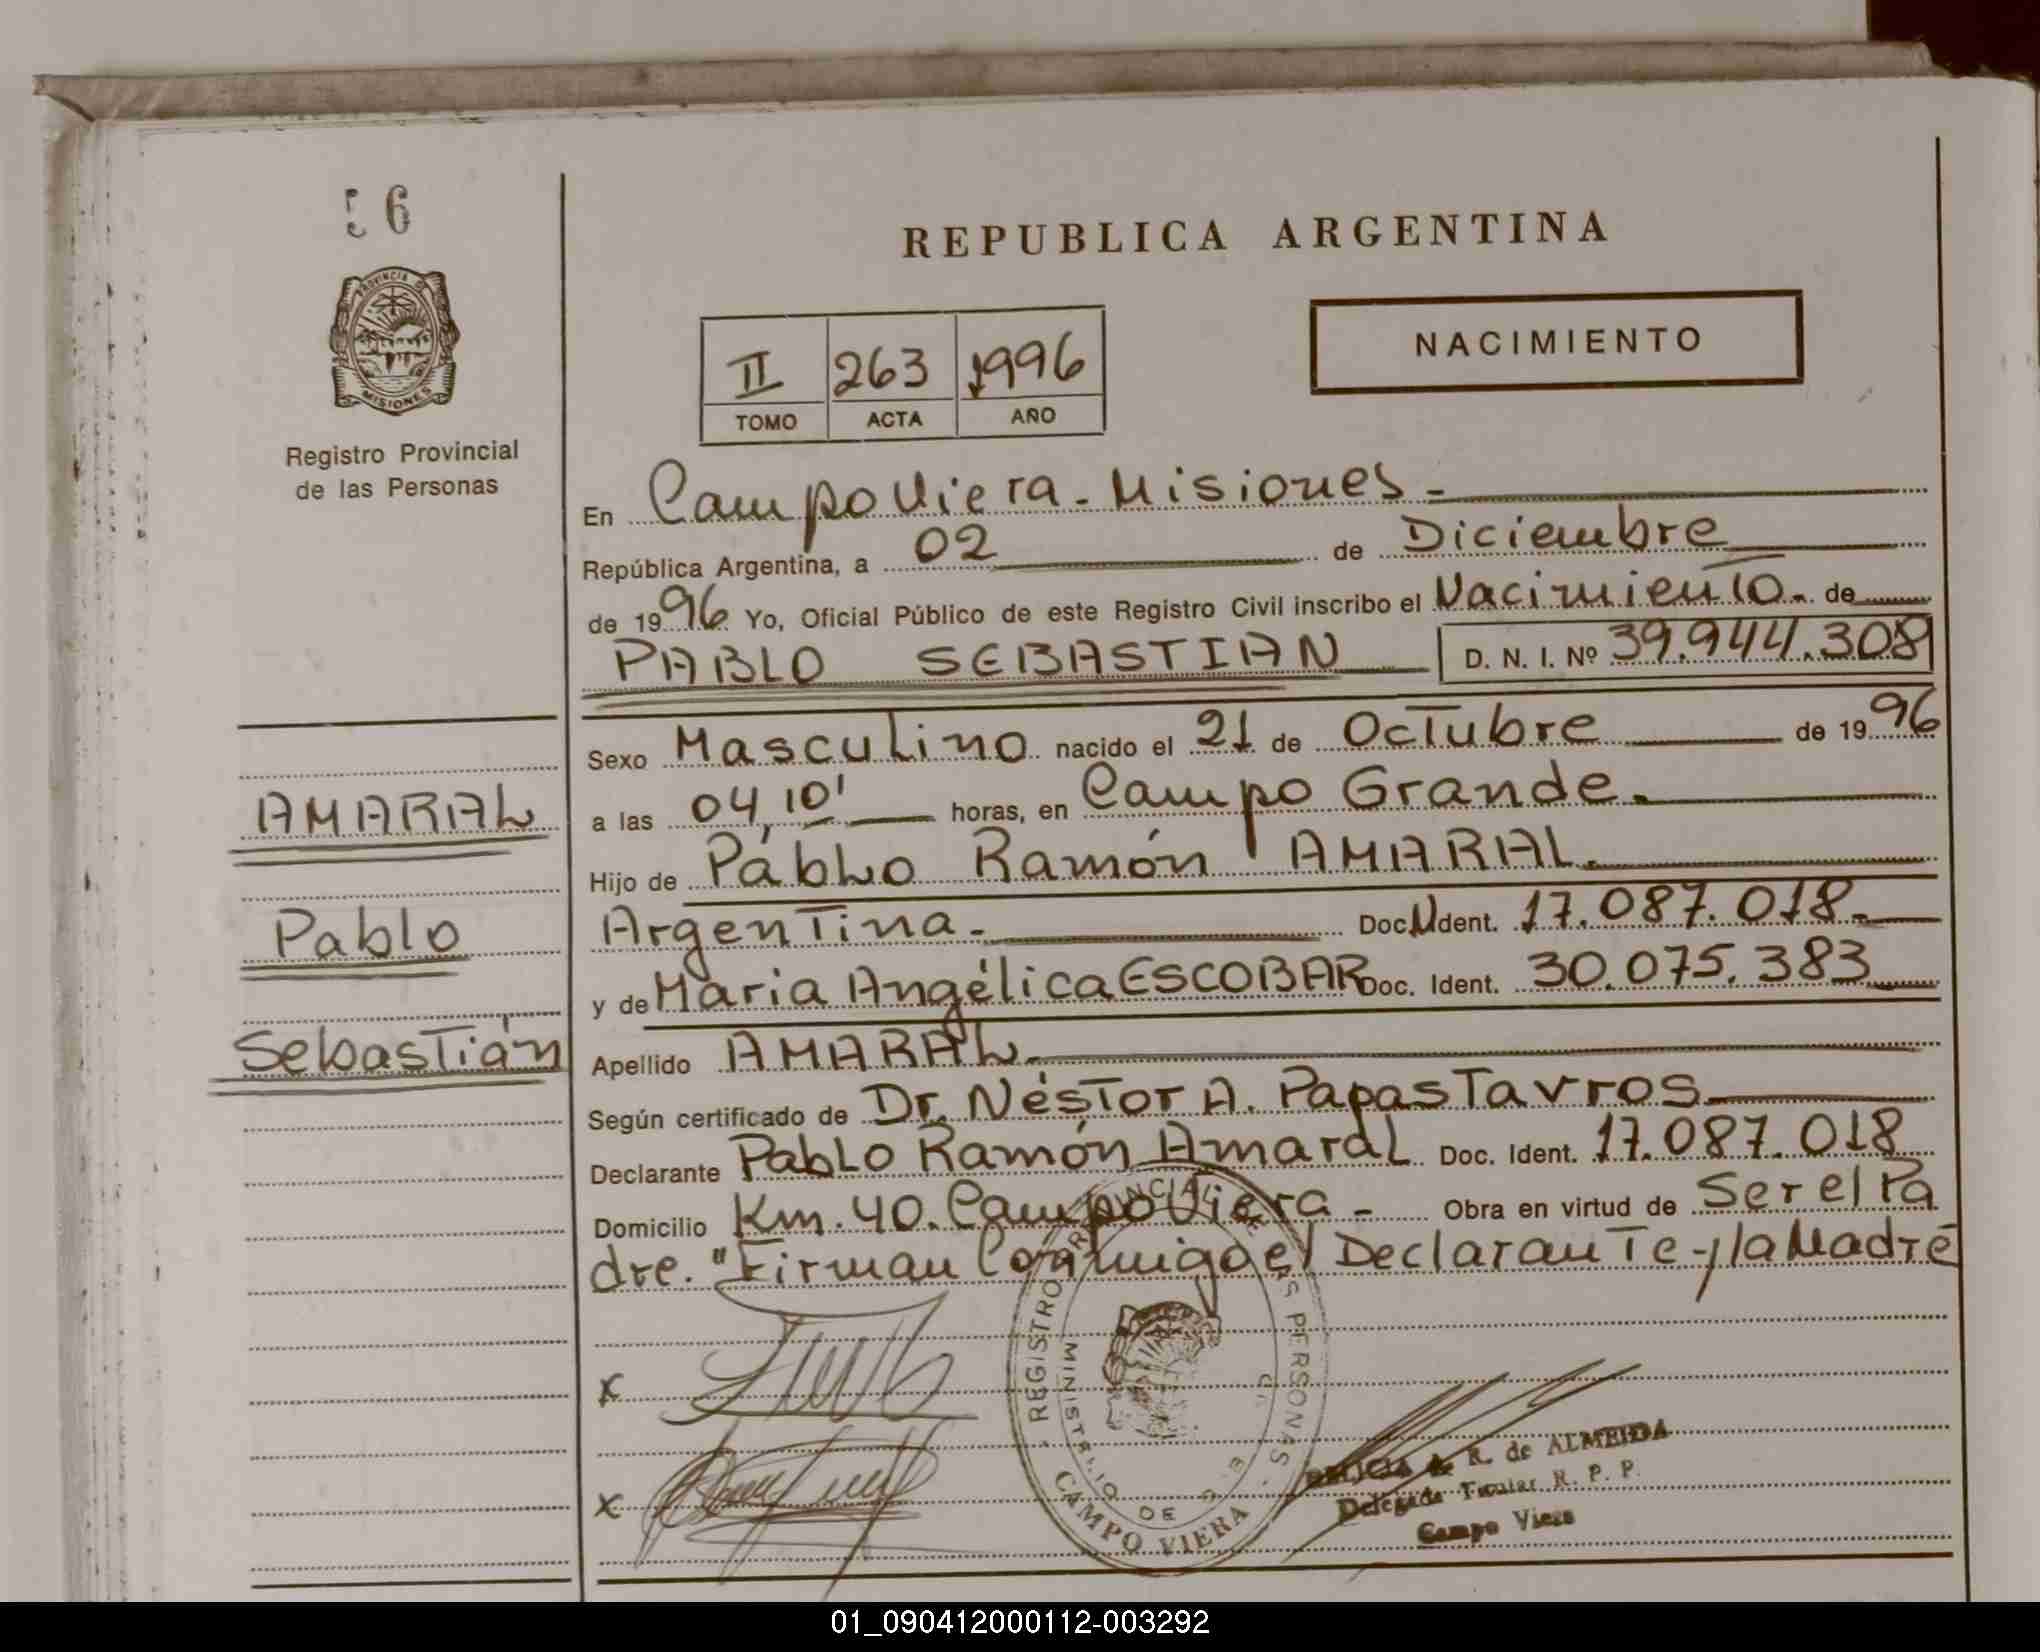 56
PROVINCIA DE
MISIONES
Registro Provincial
de las Personas
REPUBLICA ARGENTINA
II 263 1996
TOMO ACTA AÑO
NACIMIENTO
En Campo Viera - Misiones -
República Argentina, a 02 de Diciembre
de 1996 Yo, Oficial Público de este Registro Civil inscribo el Nacimiento. de
PABLO SEBASTIAN D. N. I. Nº 39.944.308
Sexo Masculino nacido el 21 de Octubre de 1996
a las 04,10' horas, en Campo Grande.
AMARAL
Hijo de Pablo Ramón AMARAL.
Pablo
Argentina. - Doc. Ident. 17.087.018 -
y de Maria Angélica ESCOBAR Doc. Ident. 30.075.383
Sebastián
Apellido AMARAL
Según certificado de Dr. Néstor A. Papastavros
Declarante Pablo Ramón Amaral Doc. Ident. 17.087.018
Domicilio Km. 40. Campo Viera - Obra en virtud de Ser el Pa
dre. "Firman Conmigo el Declarante y la Madre
x
x
REGISTRO PROVINCIAL DE LAS PERSONAS
MINISTERIO DE
CAMPO VIERA
R. de ALMEIDA
Delegada Titular R. P. P.
Campo Viera
01_090412000112-003292